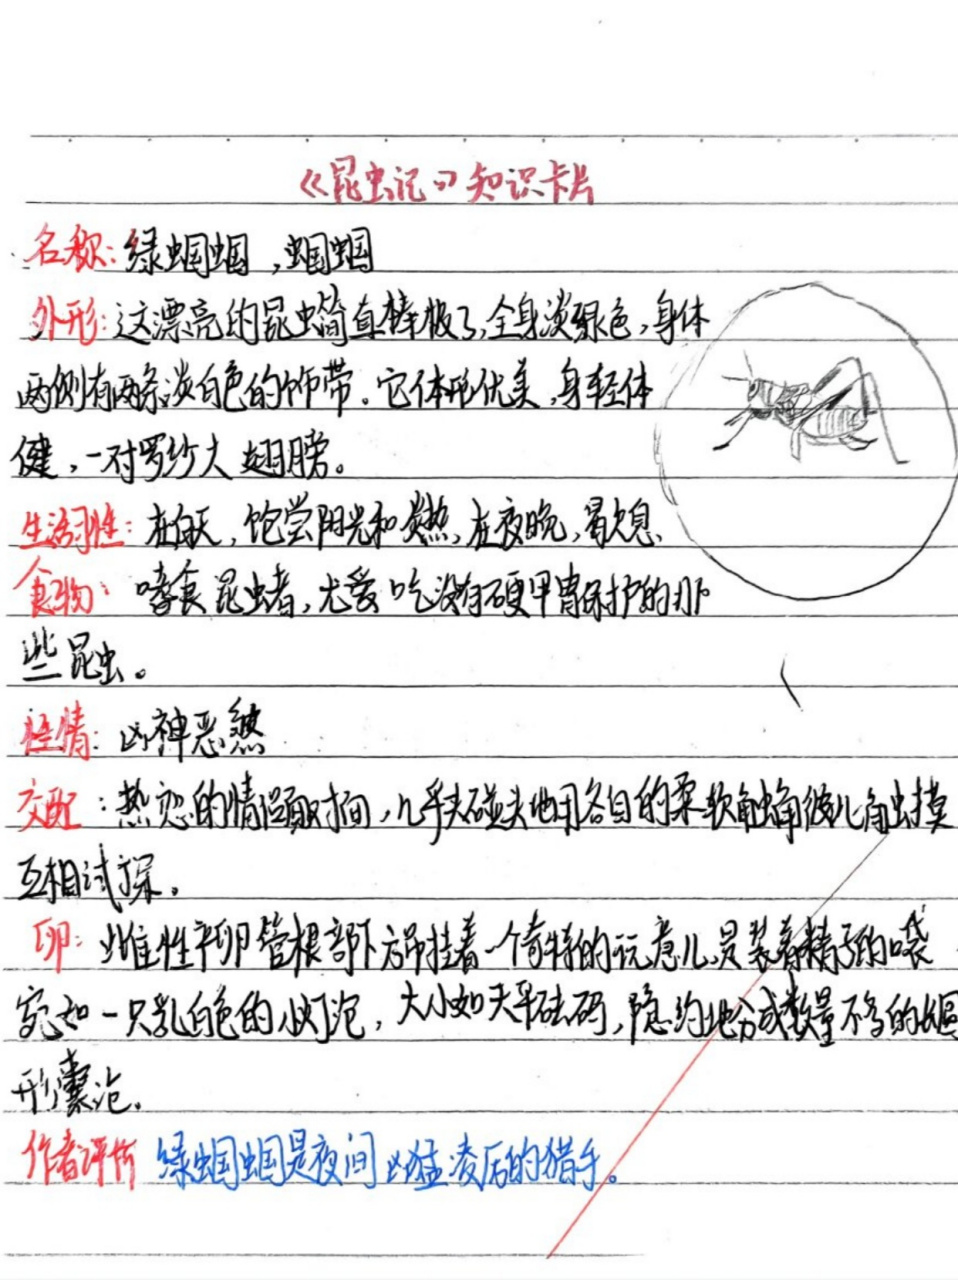 《昆虫记》知识卡片
名称：绿蝈蝈，蝈蝈
外形：这漂亮的昆虫简直棒极了，全身淡绿色，身体
两侧有两条淡白色的饰带。它体形优美，身轻体
健，一对罗纱大翅膀。
生活习性：在白天，饱尝阳光和炎热，在夜晚，歇息
食物：嗜食昆虫者，尤爱吃没有硬甲胄保护的那
些昆虫。
性情：凶神恶煞
交配：热恋的情侣面对面，几乎头碰头地用各自的柔软触角彼此触摸
互相试探。
卵：雌性产卵管根部下方吊挂着一个奇特的玩意儿是装着精子的口袋
宛如一只乳白色的小灯泡，大小如天平砝码，隐约地分成数量不多的
形囊泡。
作者评价 绿蝈蝈是夜间凶猛凌厉的猎手。